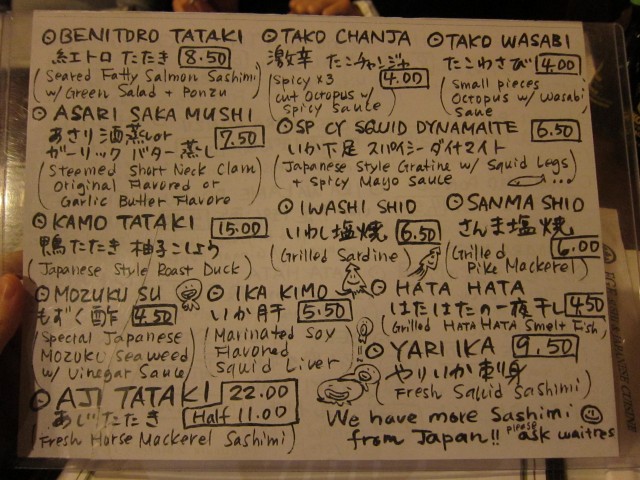 BENITORO TATAKI
紅トロ たたき 8.50
(Seared Fatty Salmon Sashimi
w/ Green Salad + Ponzu)
TAKO CHANJA
激辛 たこチャンジャ
4.00
(Spicy x3
cut Octopus w/
Spicy Sauce)
TAKO WASABI
たこわさび 4.00
(Small pieces
Octopus w/ Wasabi
Sauce)
ASARI SAKA MUSHI
あさり酒蒸しor
ガーリック バター蒸し 7.50
(Steemed Short Neck Clam
Original Flavored or
Garlic Butter Flavore)
SPICY SQUID DYNAMAITE 6.50
いか下足 スパイシーダイナマイト
(Japanese Style Gratine w/ Squid Legs
+ Spicy Mayo Sauce)
KAMO TATAKI 15.00
鴨たたき 柚子こしょう
(Japanese Style Roast Duck)
IWASHI SHIO
いわし塩焼 6.50
(Grilled Sardine)
SANMA SHIO
さんま塩焼
6.00
(Grilled
Pike Mackerel)
MOZUKU SU
もずく酢 4.50
(Special Japanese
Mozuku Seaweed
w/ Vinegar Sauce)
IKA KIMO
いか肝 5.50
(Marinated Soy
Flavored
Squid Liver)
HATA HATA
はたはたの一夜干し 4.50
(Grilled HATA HATA Smelt Fish)
YARI IKA 9.50
やりいか刺身
(Fresh Squid Sashimi)
AJI TATAKI 22.00
あじたたき Half 11.00
(Fresh Horse Mackerel Sashimi)
We have more Sashimi
from Japan!! please ask waitres